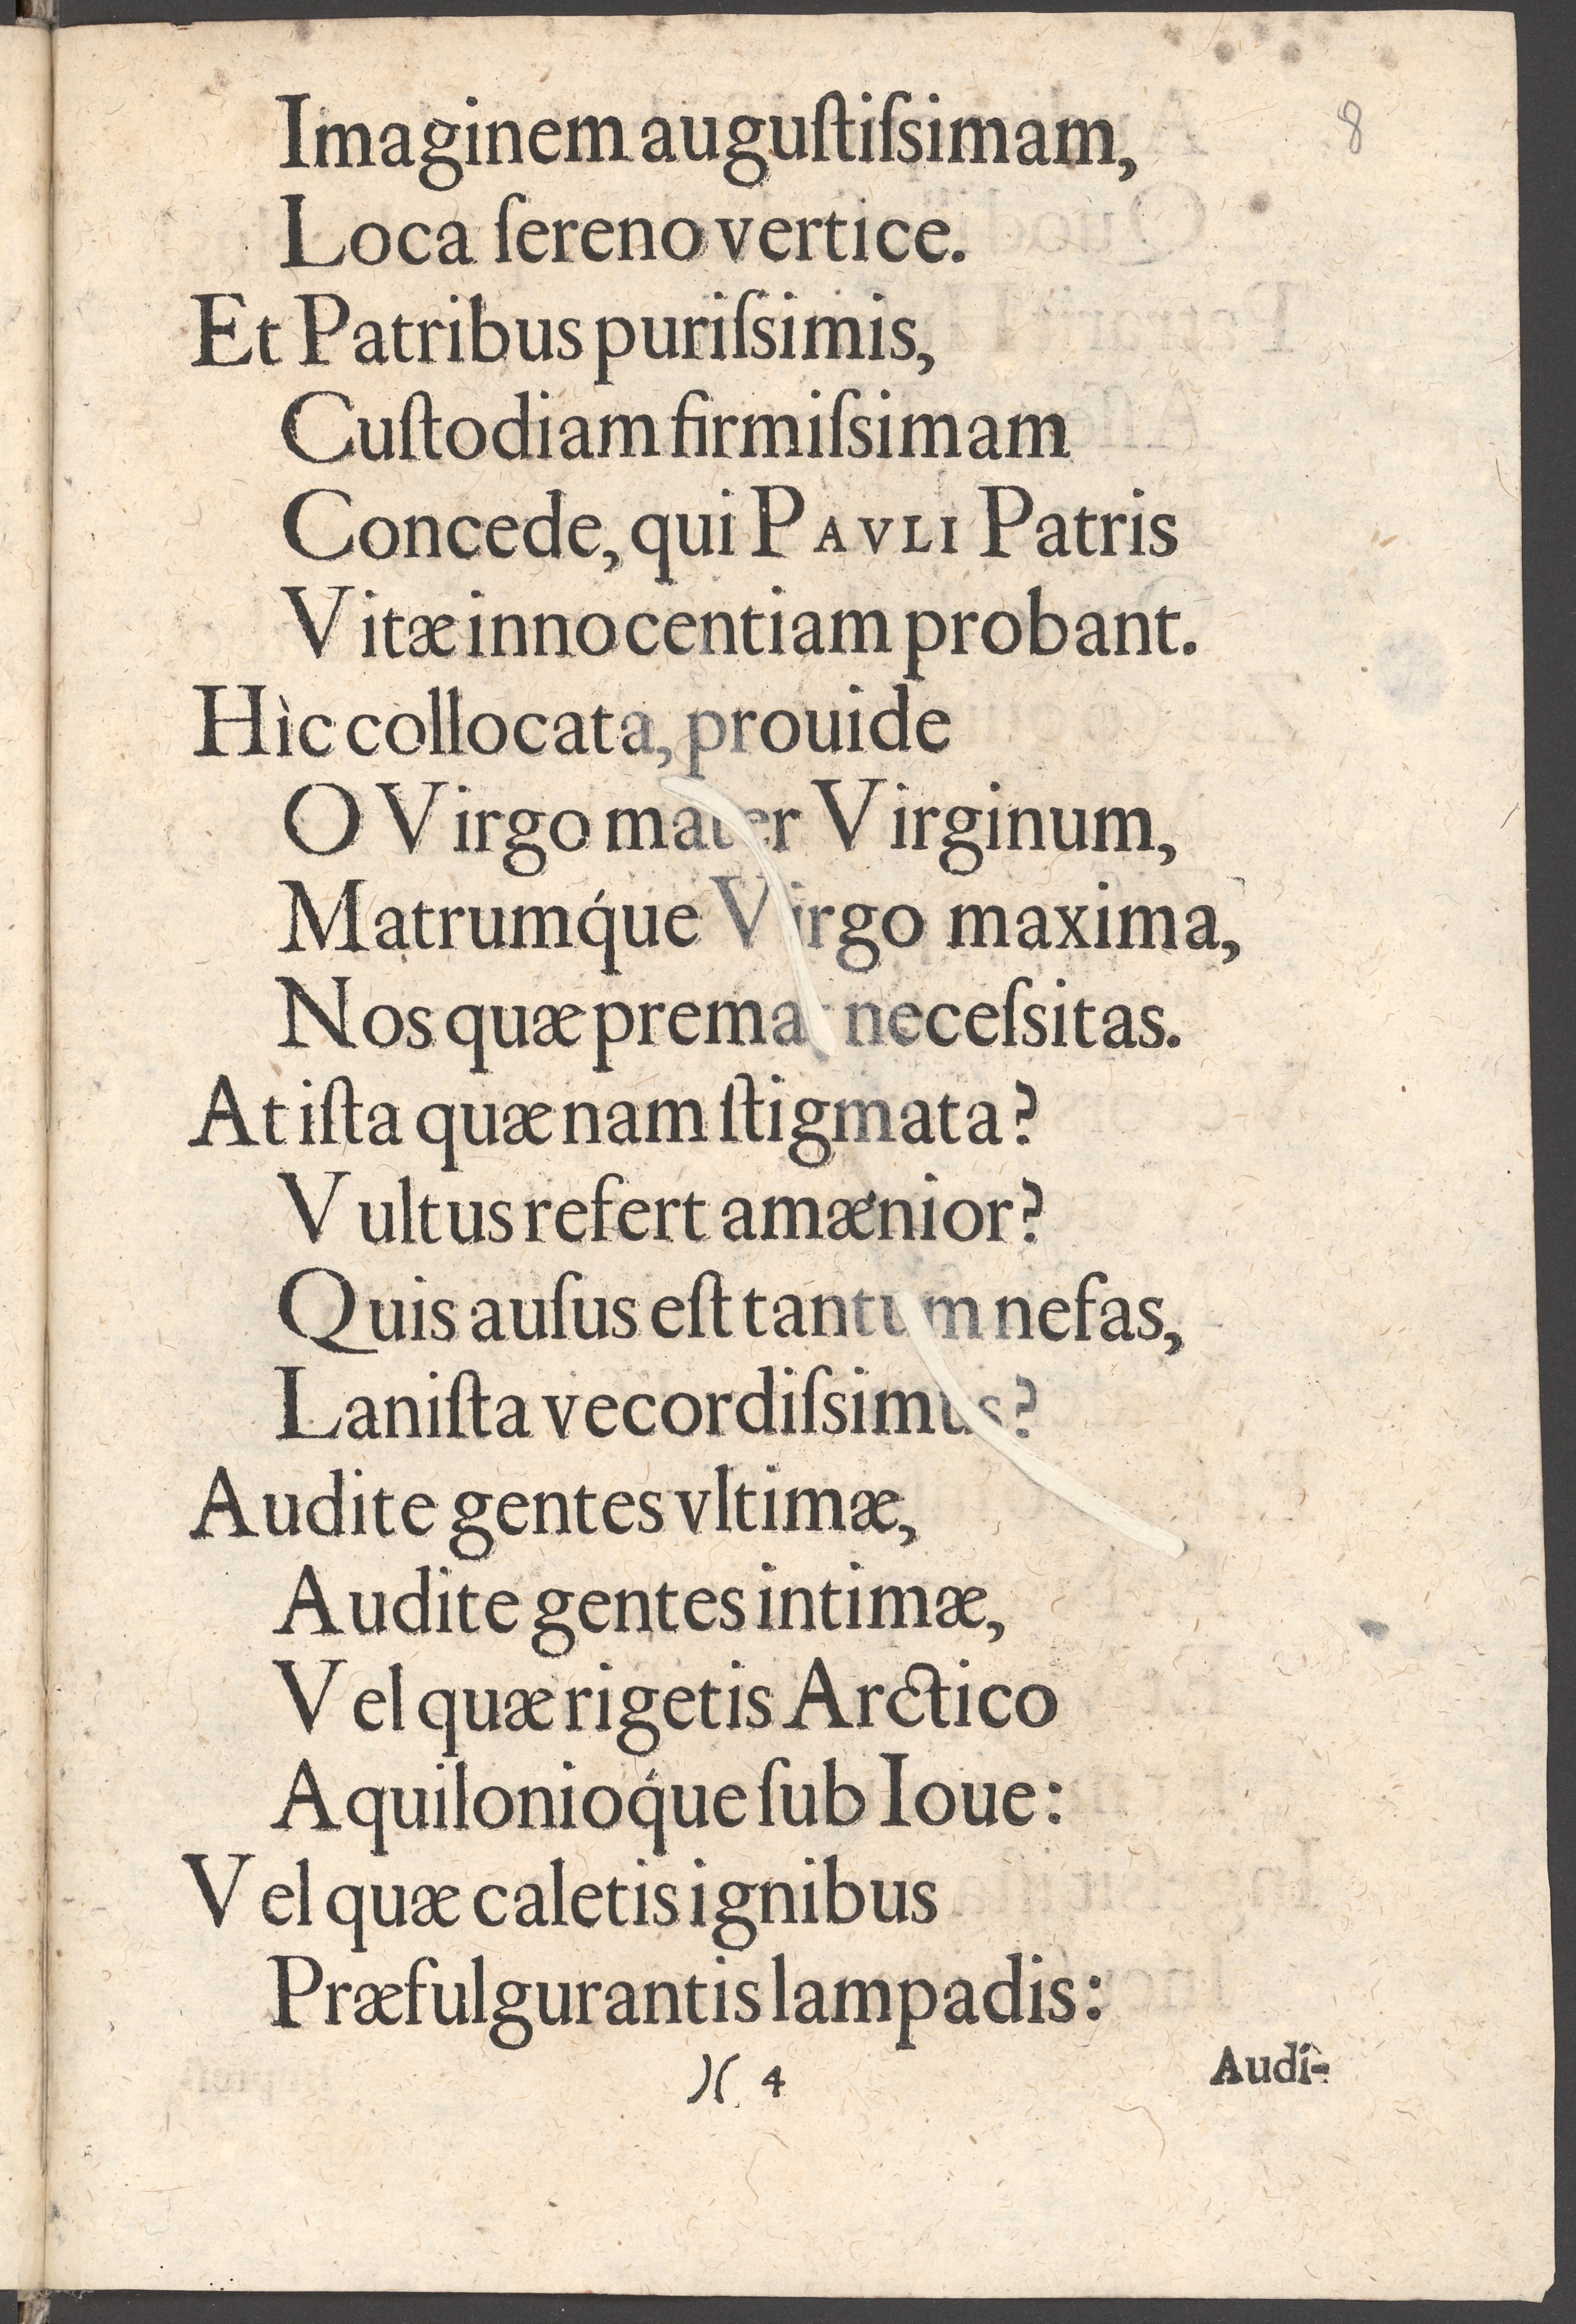 8
Imaginem auguſtiſsimam,
Loca ſereno vertice.
Et Patribus puriſsimis,
Cuſtodiam firmiſsimam
Concede, qui PAVLI Patris
Vitæ innocentiam probant.
Hìc collocata, prouide
O Virgo mater Virginum,
Matrumq́ue Virgo maxima,
Nos quæ premat neceſsitas.
At iſta quænam ſtigmata?
Vultus refert amænior?
Quis auſus eſt tantum nefas,
Laniſta vecordiſsimus?
Audite gentes vltimæ,
Audite gentes intimæ,
Vel quæ rigetis Arctico
Aquilonioq́ue ſub Ioue:
Vel quæ caletis ignibus
Præfulgurantis lampadis:
)( 4
Audi-